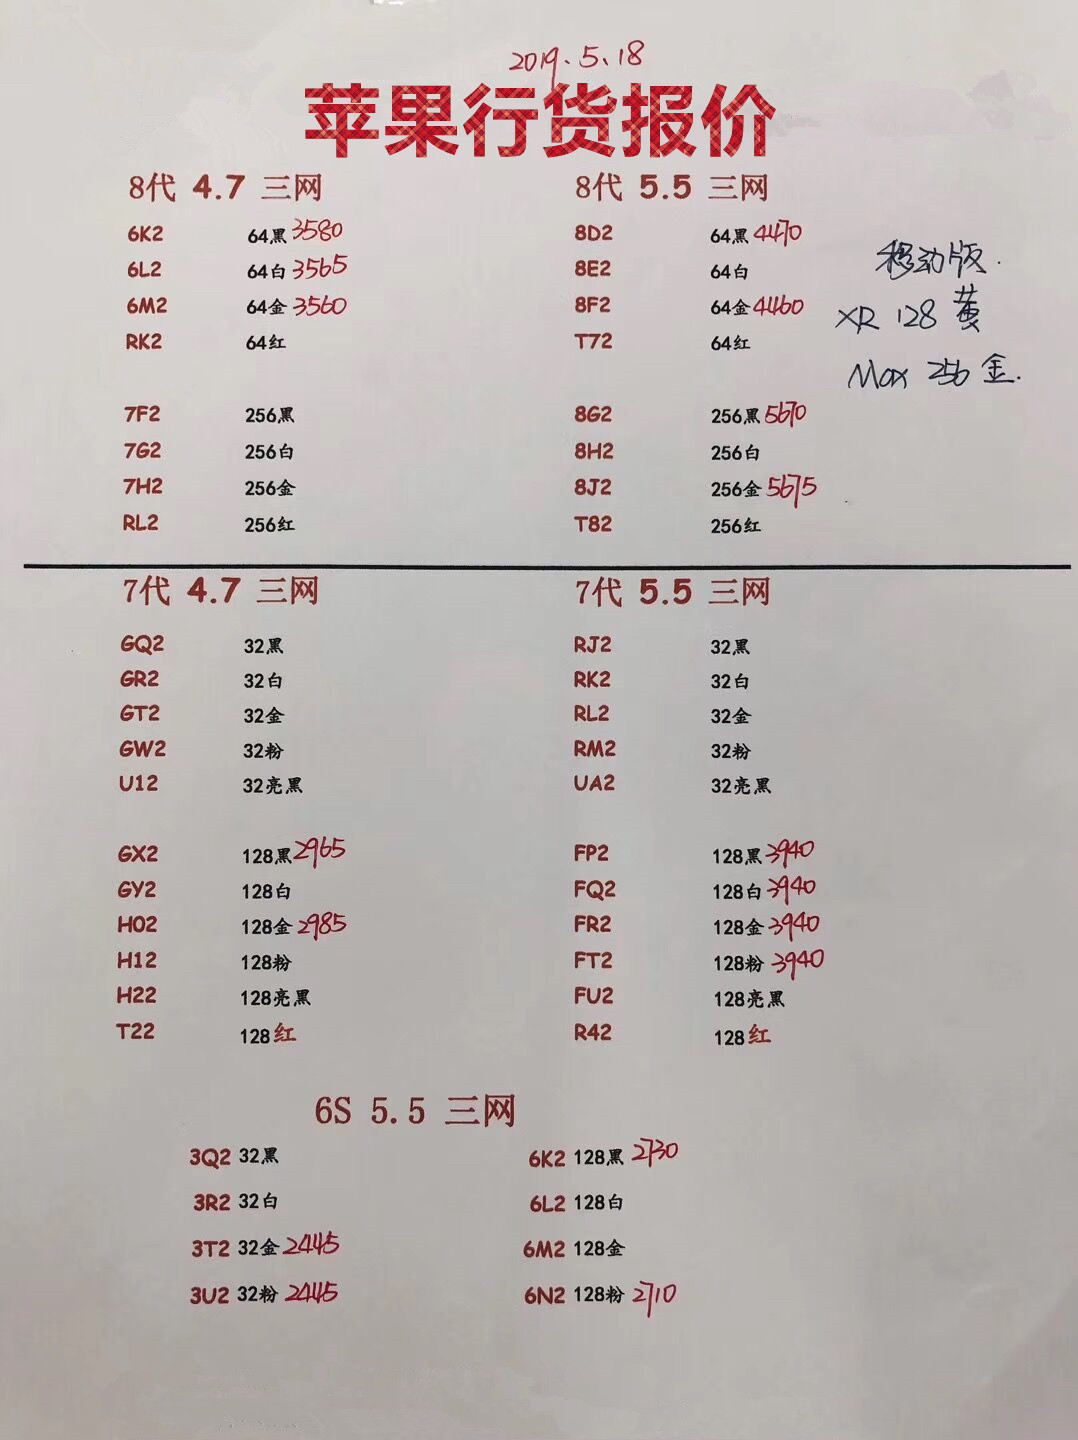 2019.5.18
苹果行货报价
8代 4.7 三网
6K2 64黑 3580
6L2 64白 3565
6M2 64金 3560
RK2 64红
7F2 256黑
7G2 256白
7H2 256金
RL2 256红
8代 5.5 三网
8D2 64黑 4470
8E2 64白
8F2 64金 4460
T72 64红
8G2 256黑 5670
8H2 256白
8J2 256金 5675
T82 256红
移动版.
XR 128 黄
Max 256 金.
7代 4.7 三网
GQ2 32黑
GR2 32白
GT2 32金
GW2 32粉
U12 32亮黑
GX2 128黑 2965
GY2 128白
H02 128金 2985
H12 128粉
H22 128亮黑
T22 128红
7代 5.5 三网
RJ2 32黑
RK2 32白
RL2 32金
RM2 32粉
UA2 32亮黑
FP2 128黑 3940
FQ2 128白 3940
FR2 128金 3940
FT2 128粉 3940
FU2 128亮黑
R42 128红
6S 5.5 三网
3Q2 32黑
3R2 32白
3T2 32金 2445
3U2 32粉 2445
6K2 128黑 2730
6L2 128白
6M2 128金
6N2 128粉 2710